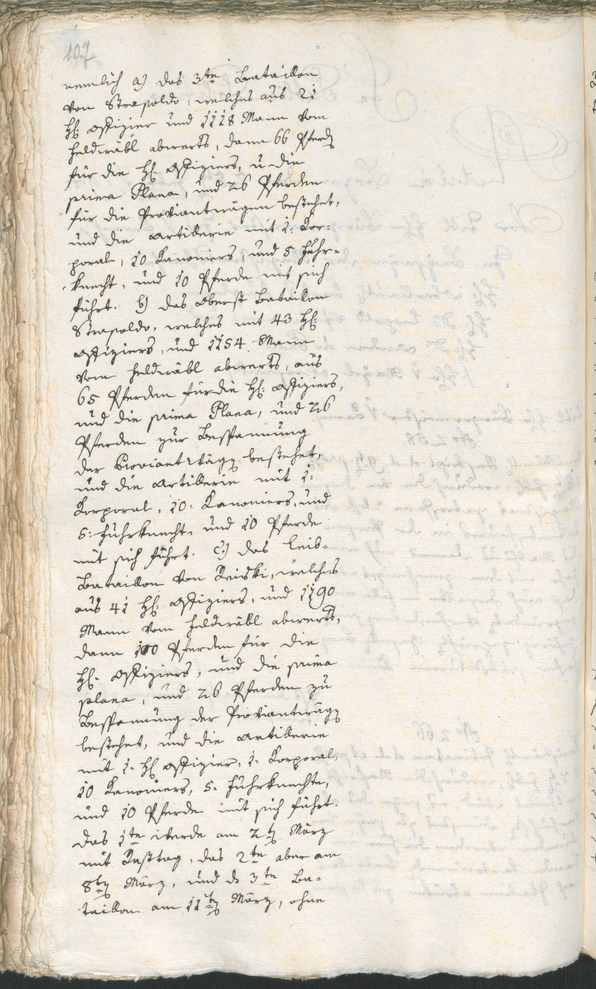 107
nemlich a) das 3te Bataillon
von Strasoldo, welches aus 21
H: Offizier und 1118 Mann vom
Feldwäbl abwerts, dann 66 Pferd
für die H: Offiziers, u: die
prima Plana, und 26 Pferden
für die Proviantwägen bestehet,
und die Artillerie mit 1: Cor-
poral, 10 Kanoniers, und 5 Fuhr-
knecht, und 10 Pferde mit sich
führt. b) das Oberst Bataillon
Strasoldo, welches mit 43 H:
Offiziers, und 1154 Mann
vom Feldwäbl abwerts, aus
65 Pferden für die H: Offiziers,
und die prima Plana, und 26
Pferden zur Bespannung
der Proviantwäg bestehet,
und die Artillerie mit 1:
Korporal, 10: Kanoniers, und
5: Fuhrknecht, und 10 Pferde
mit sich führt. c) das Leib-
Bataillon von Reiski, welches
aus 41 H: Offiziers, und 1190
Mann vom Feldwäbl abwerts,
dann 100 Pferden für die
H: Offiziers, und die prima
plana, und 26 Pferden zu
Bespannung der Proviantwäg
bestehet, und die Artillerie
mit 1: H: Offizier, 1: Korporal,
10 Kanoniers, 5: Fuhrknechte,
und 10 Pferde mit sich führt.
das 1te wurde am 2ten März
mit Rasttag, das 2te aber am
8ten März, und d 3te Ba-
taillon am 11ten März, ohne